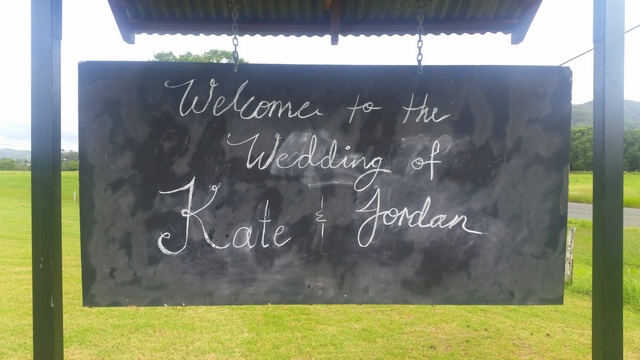 Welcome to the
Wedding of
Kate & Jordan